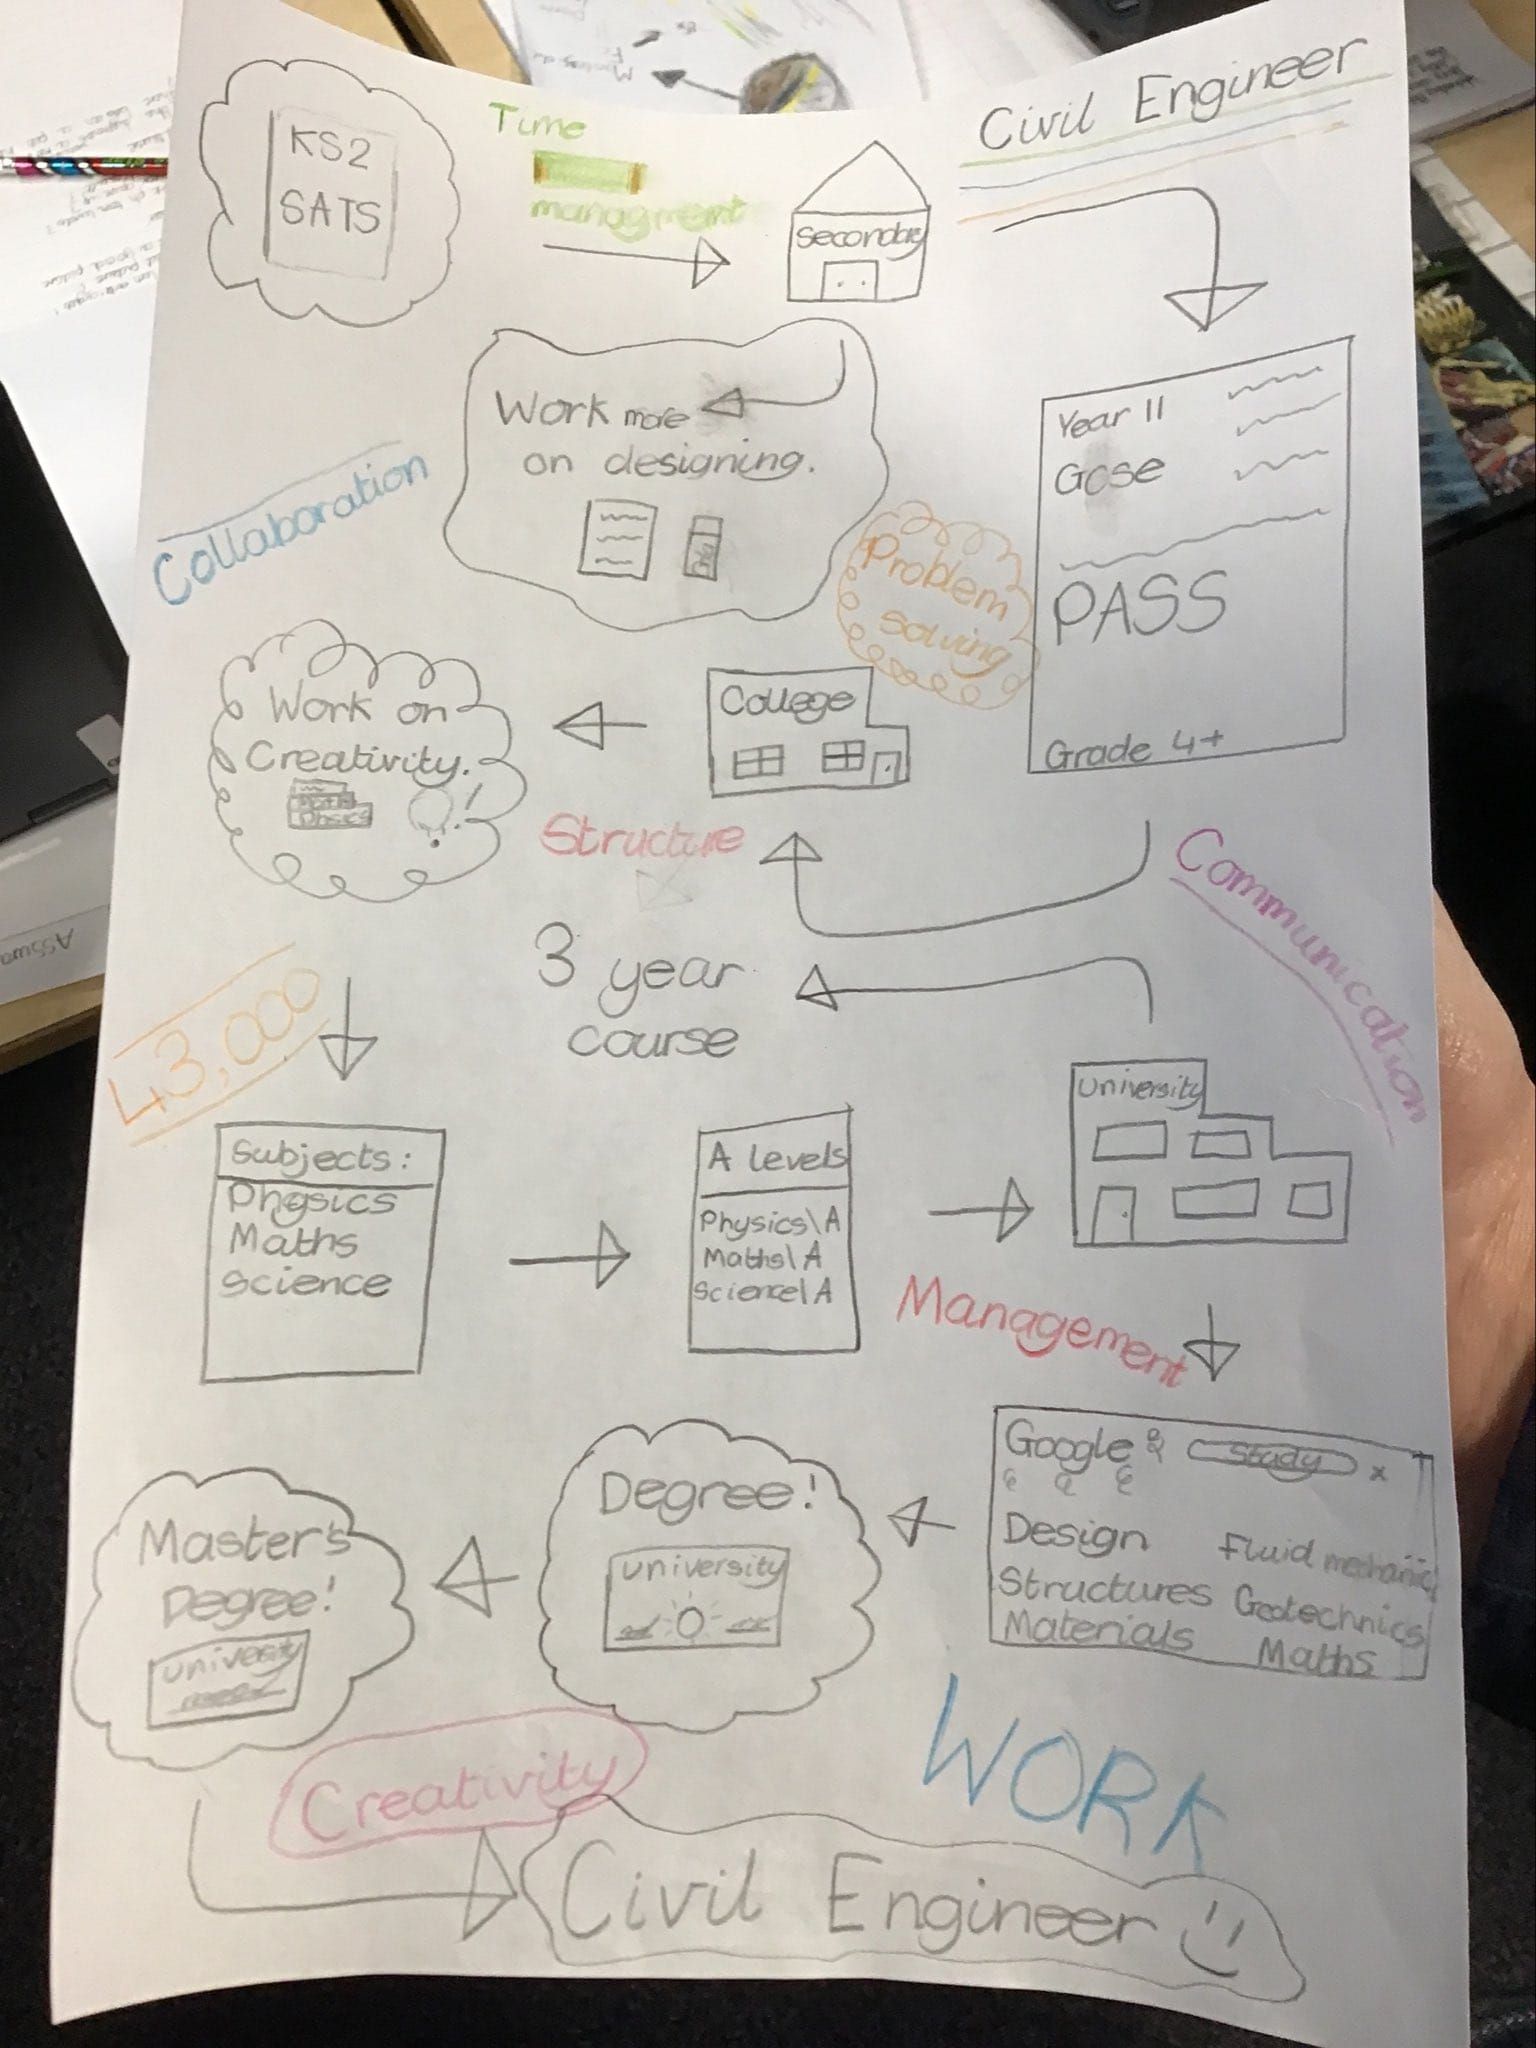 KS2
SATS
Time
managment
Secondary
Civil Engineer
Year 11
Gcse
PASS
Grade 4+
Work more
on designing.
Collaboration
Problem
solving
College
Work on
Creativity.
Maths
Physics
Structure
Communication
3 year
course
43,000
Subjects:
Physics
Maths
Science
A Levels
Physics\A
Maths\A
Science\A
University
Management
Google
Study
x
Design
Structures
Materials
Fluid mechanics
Geotechnics
Maths
Degree!
University
Master's
Degree!
University
Creativity
WORK
Civil Engineer